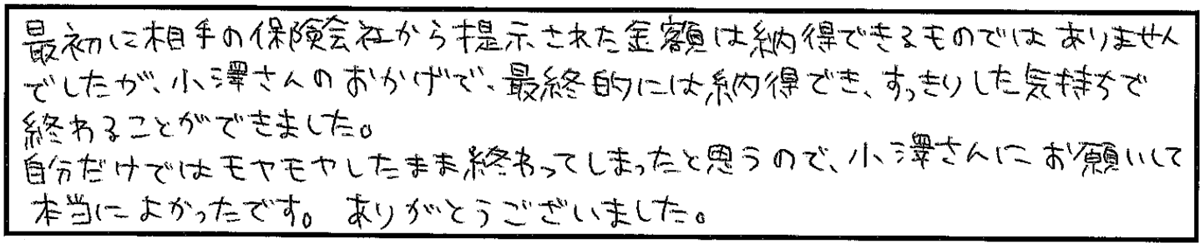 最初に相手の保険会社から提示された金額は納得できるものではありません
でしたが、小澤さんのおかげで、最終的には納得でき、すっきりした気持ちで
終わることができました。
自分だけではモヤモヤしたまま終わってしまったと思うので、小澤さんにお願いして
本当によかったです。ありがとうございました。